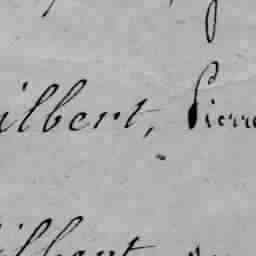 ilbert, Pierre
ilbert